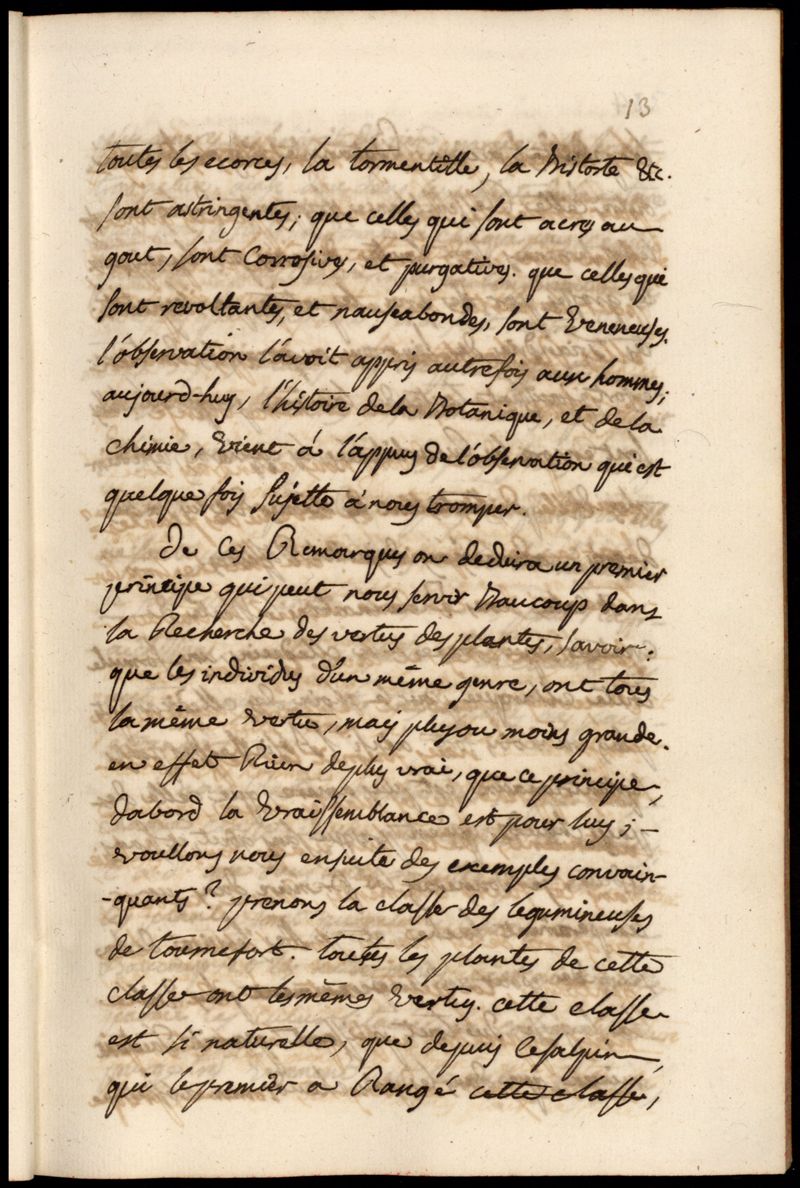 13
toutes les ecorces, la tormentille, la bistorte &c.
sont astringentes; que celles qui sont acres au
gout, sont Corrosives, et purgatives. que celles qui
sont revoltantes, et nauseabondes, sont Veneneuses.
l'observation l'avoit appris autrefois aux hommes;
aujourd-huy, l'histoire de la Botanique, et de la
chimie, vient á l'appuy de l'observation qui est
quelque fois sujette á nous tromper.
De ces Remarques on deduira un premier
principe qui peut nous servir Baucoup dans
la Recherche des vertus des plantes, savoir:
que les individus d'un même genre, ont tous
la même vertu, mais plus ou moins grande.
en effet Rien de plus vrai, que ce principe,
dabord la vraissemblance est pour luy; -
voullons nous ensuite des exemples convain-
-quants? prenons la classe des legumineuses
de tournefort. toutes les plantes de cette
classe ont les mêmes vertus. cette classe
est si naturelle, que depuis Cesalpin,
qui le premier a Rangé cette classe,